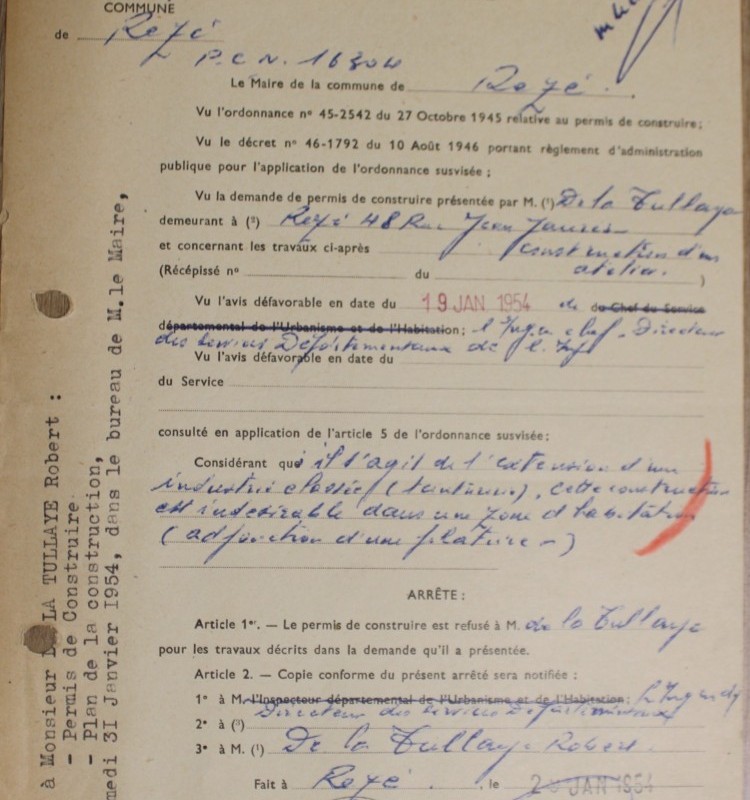 COMMUNE
de Rezé
P.C.N. 16304
Le Maire de la commune de Rezé.
Vu l'ordonnance nº 45-2542 du 27 Octobre 1945 relative au permis de construire;
Vu le décret nº 46-1792 du 10 Août 1946 portant règlement d'administration
publique pour l'application de l'ordonnance susvisée ;
Vu la demande de permis de construire présentée par M. (¹) De la Tullaye
demeurant à (²) Rezé 48 Rue Jean Jaurès
et concernant les travaux ci-après construction d'un
atelier.
(Récépissé nº du )
Vu l'avis défavorable en date du 19 JAN 1954 de du Chef du Service
départemental de l'Urbanisme et de l'Habitation; l'Ing en chef. Directeur
des Services Départementaux de l'
Vu l'avis défavorable en date du
du Service
consulté en application de l'article 5 de l'ordonnance susvisée;
Considérant que il s'agit de l'extension d'une
industrie classée ( ), cette construction
est indésirable dans une zone d'habitation
( adjonction d'une )
ARRÊTE :
Article 1er. — Le permis de construire est refusé à M. de la Tullaye
pour les travaux décrits dans la demande qu'il a présentée.
Article 2. — Copie conforme du présent arrêté sera notifiée :
1º à M. l'Inspecteur départemental de l'Urbanisme et de l'Habitation; l'Ing en ch
Directeur des Services Départementaux
2º à (³)
3º à M. (¹) De la Tullaye Robert.
Fait à Rezé, le 2 JAN 1954
à Monsieur LA TULLAYE Robert :
- Permis de Construire
- Plan de la construction,
medi 31 Janvier 1954, dans le bureau de M.le Maire,